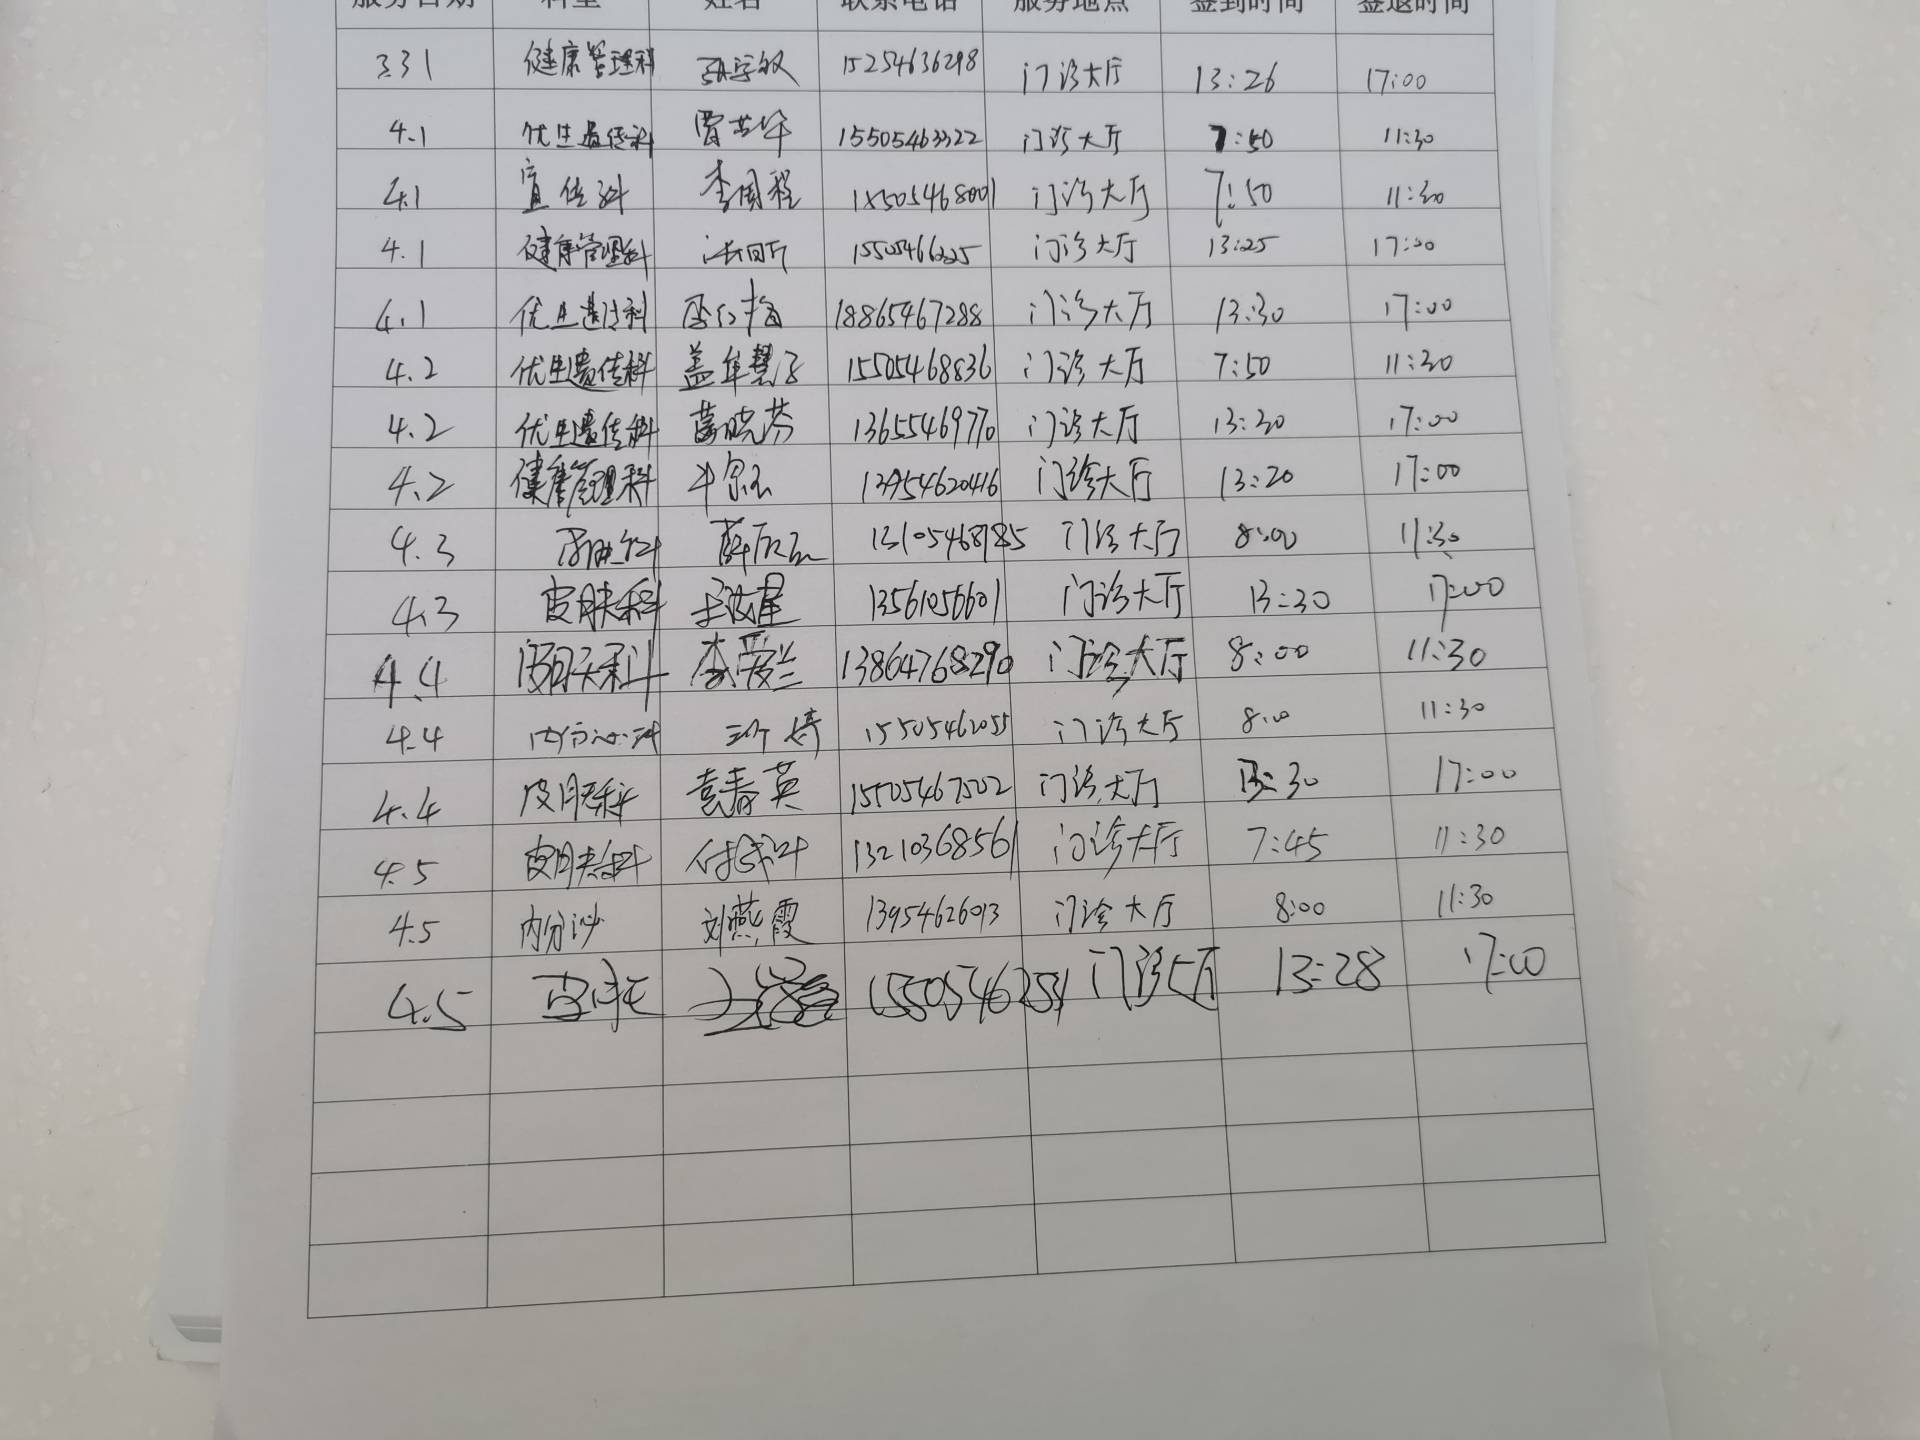 服务日期 科室 姓名 联系电话 服务地点 签到时间 签退时间
3.31 健康管理科 15254636298 门诊大厅 13:26 17:00
4.1 优生遗传科 15505463322 门诊大厅 7:50 11:30
4.1 宣传科 李国程 18505468001 门诊大厅 7:50 11:30
4.1 健康管理科 15505466225 门诊大厅 13:25 17:00
4.1 优生遗传科 18865467288 门诊大厅 13:30 17:00
4.2 优生遗传科 15505468836 门诊大厅 7:50 11:30
4.2 优生遗传科 13655469770 门诊大厅 13:30 17:00
4.2 健康管理科 13954620416 门诊大厅 13:20 17:00
4.3 13105468985 门诊大厅 8:00 11:30
4.3 皮肤科 13561056601 门诊大厅 13:30 17:00
4.4 李爱兰 13864768290 门诊大厅 8:00 11:30
4.4 15505462055 门诊大厅 8:00 11:30
4.4 皮肤科 袁春英 15505467502 门诊大厅 13:30 17:00
4.5 皮肤科 13210368561 门诊大厅 7:45 11:30
4.5 内分泌 刘燕霞 13954626013 门诊大厅 8:00 11:30
4.5 皮肤 1550546251 门诊大厅 13:28 17:00